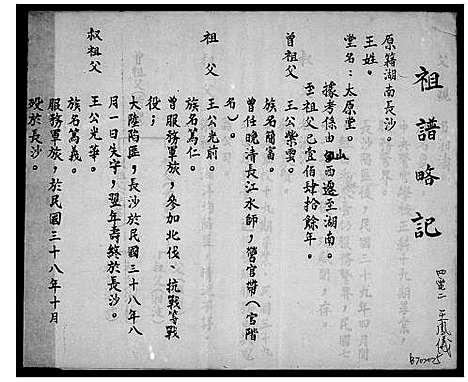 祖譜略記
王鳳儀
原籍湖南長沙。
王姓。
堂名：太原堂。
據考係由山西遷至湖南。
至祖父已壹佰肆拾餘年。
曾祖父
王公紫雲。
族名簡富。
曾任晚清長江水師，營官帶（官階
名）。
祖父
王公光前。
族名篤仁。
曾服務軍旅，參加北伐、抗戰等戰
役；
大陸陷匪，長沙於民國三十八年八
月一日失守，翌年壽終於長沙。
叔祖父
王公光華。
族名篤義。
服務軍旅，於民國三十八年十月
歿於長沙。